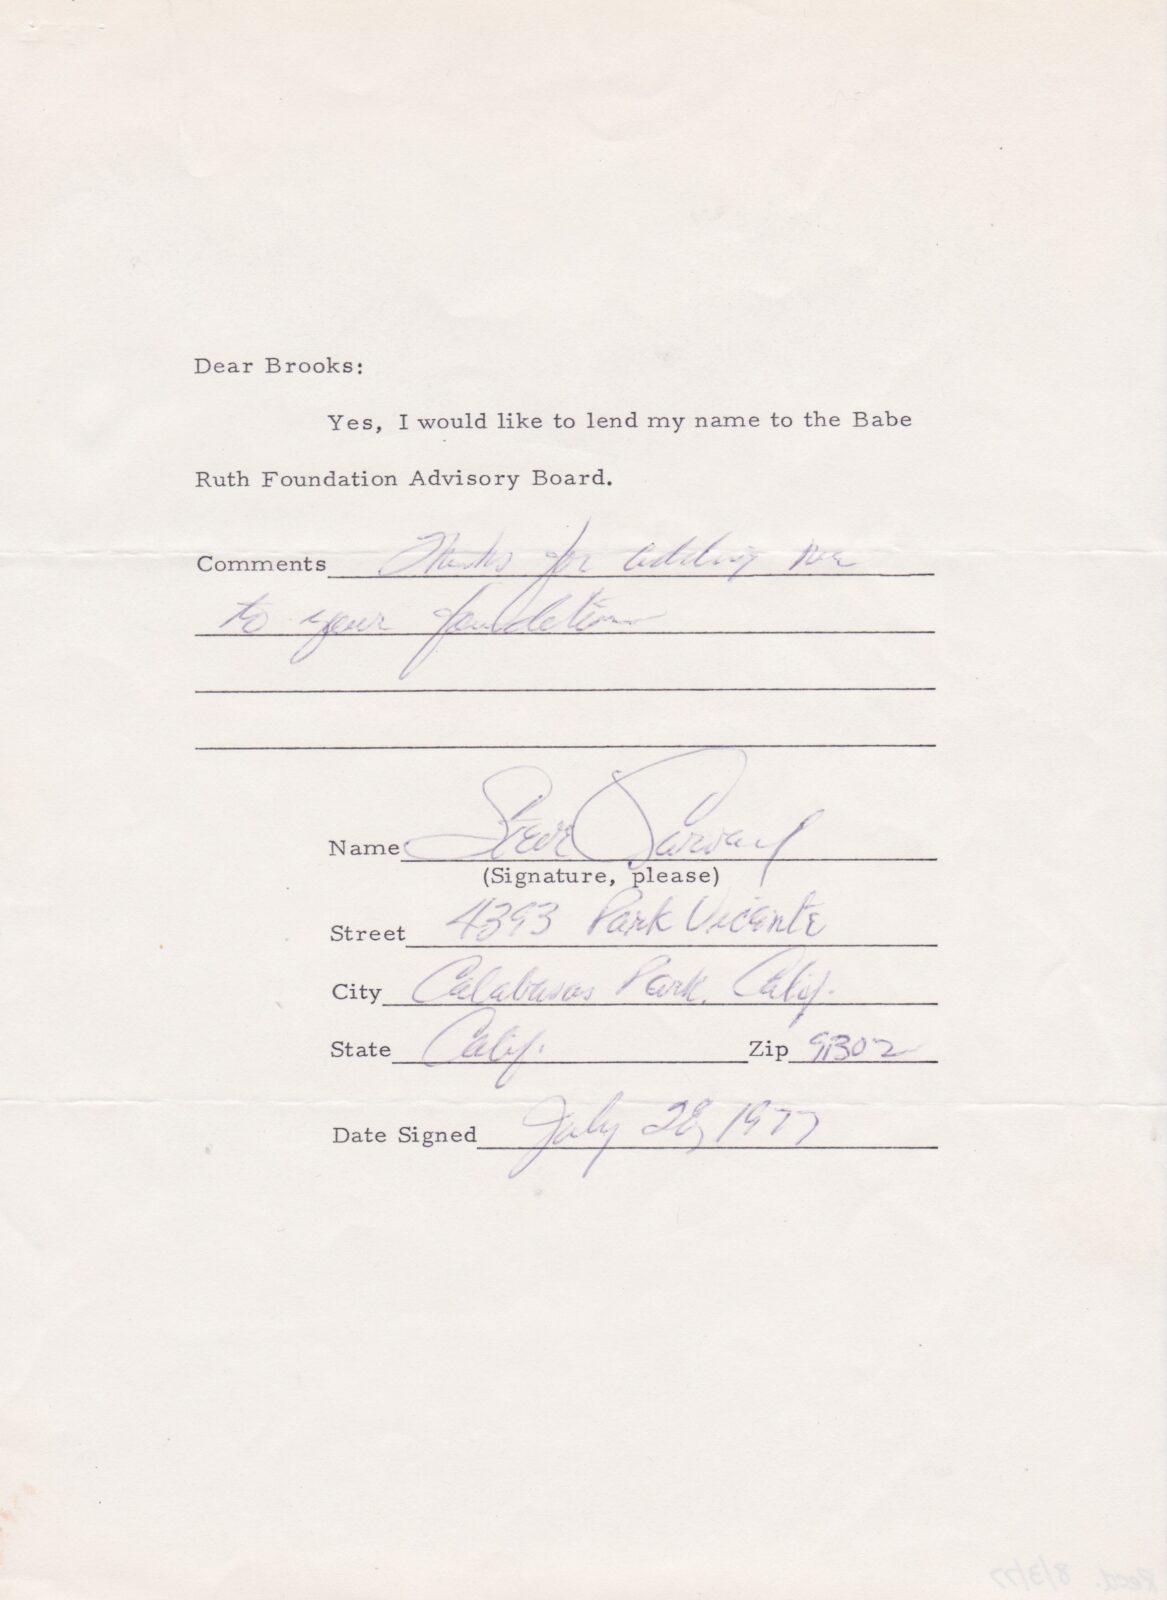 Dear Brooks:
Yes, I would like to lend my name to the Babe
Ruth Foundation Advisory Board.
Comments Thanks for adding me
to your foundation
Name Steve Garvey
(Signature, please)
Street 4393 Park Vicente
City Calabasas Park, Calif.
State Calif. Zip 91302
Date Signed July 28, 1977
Recd. 8/3/77